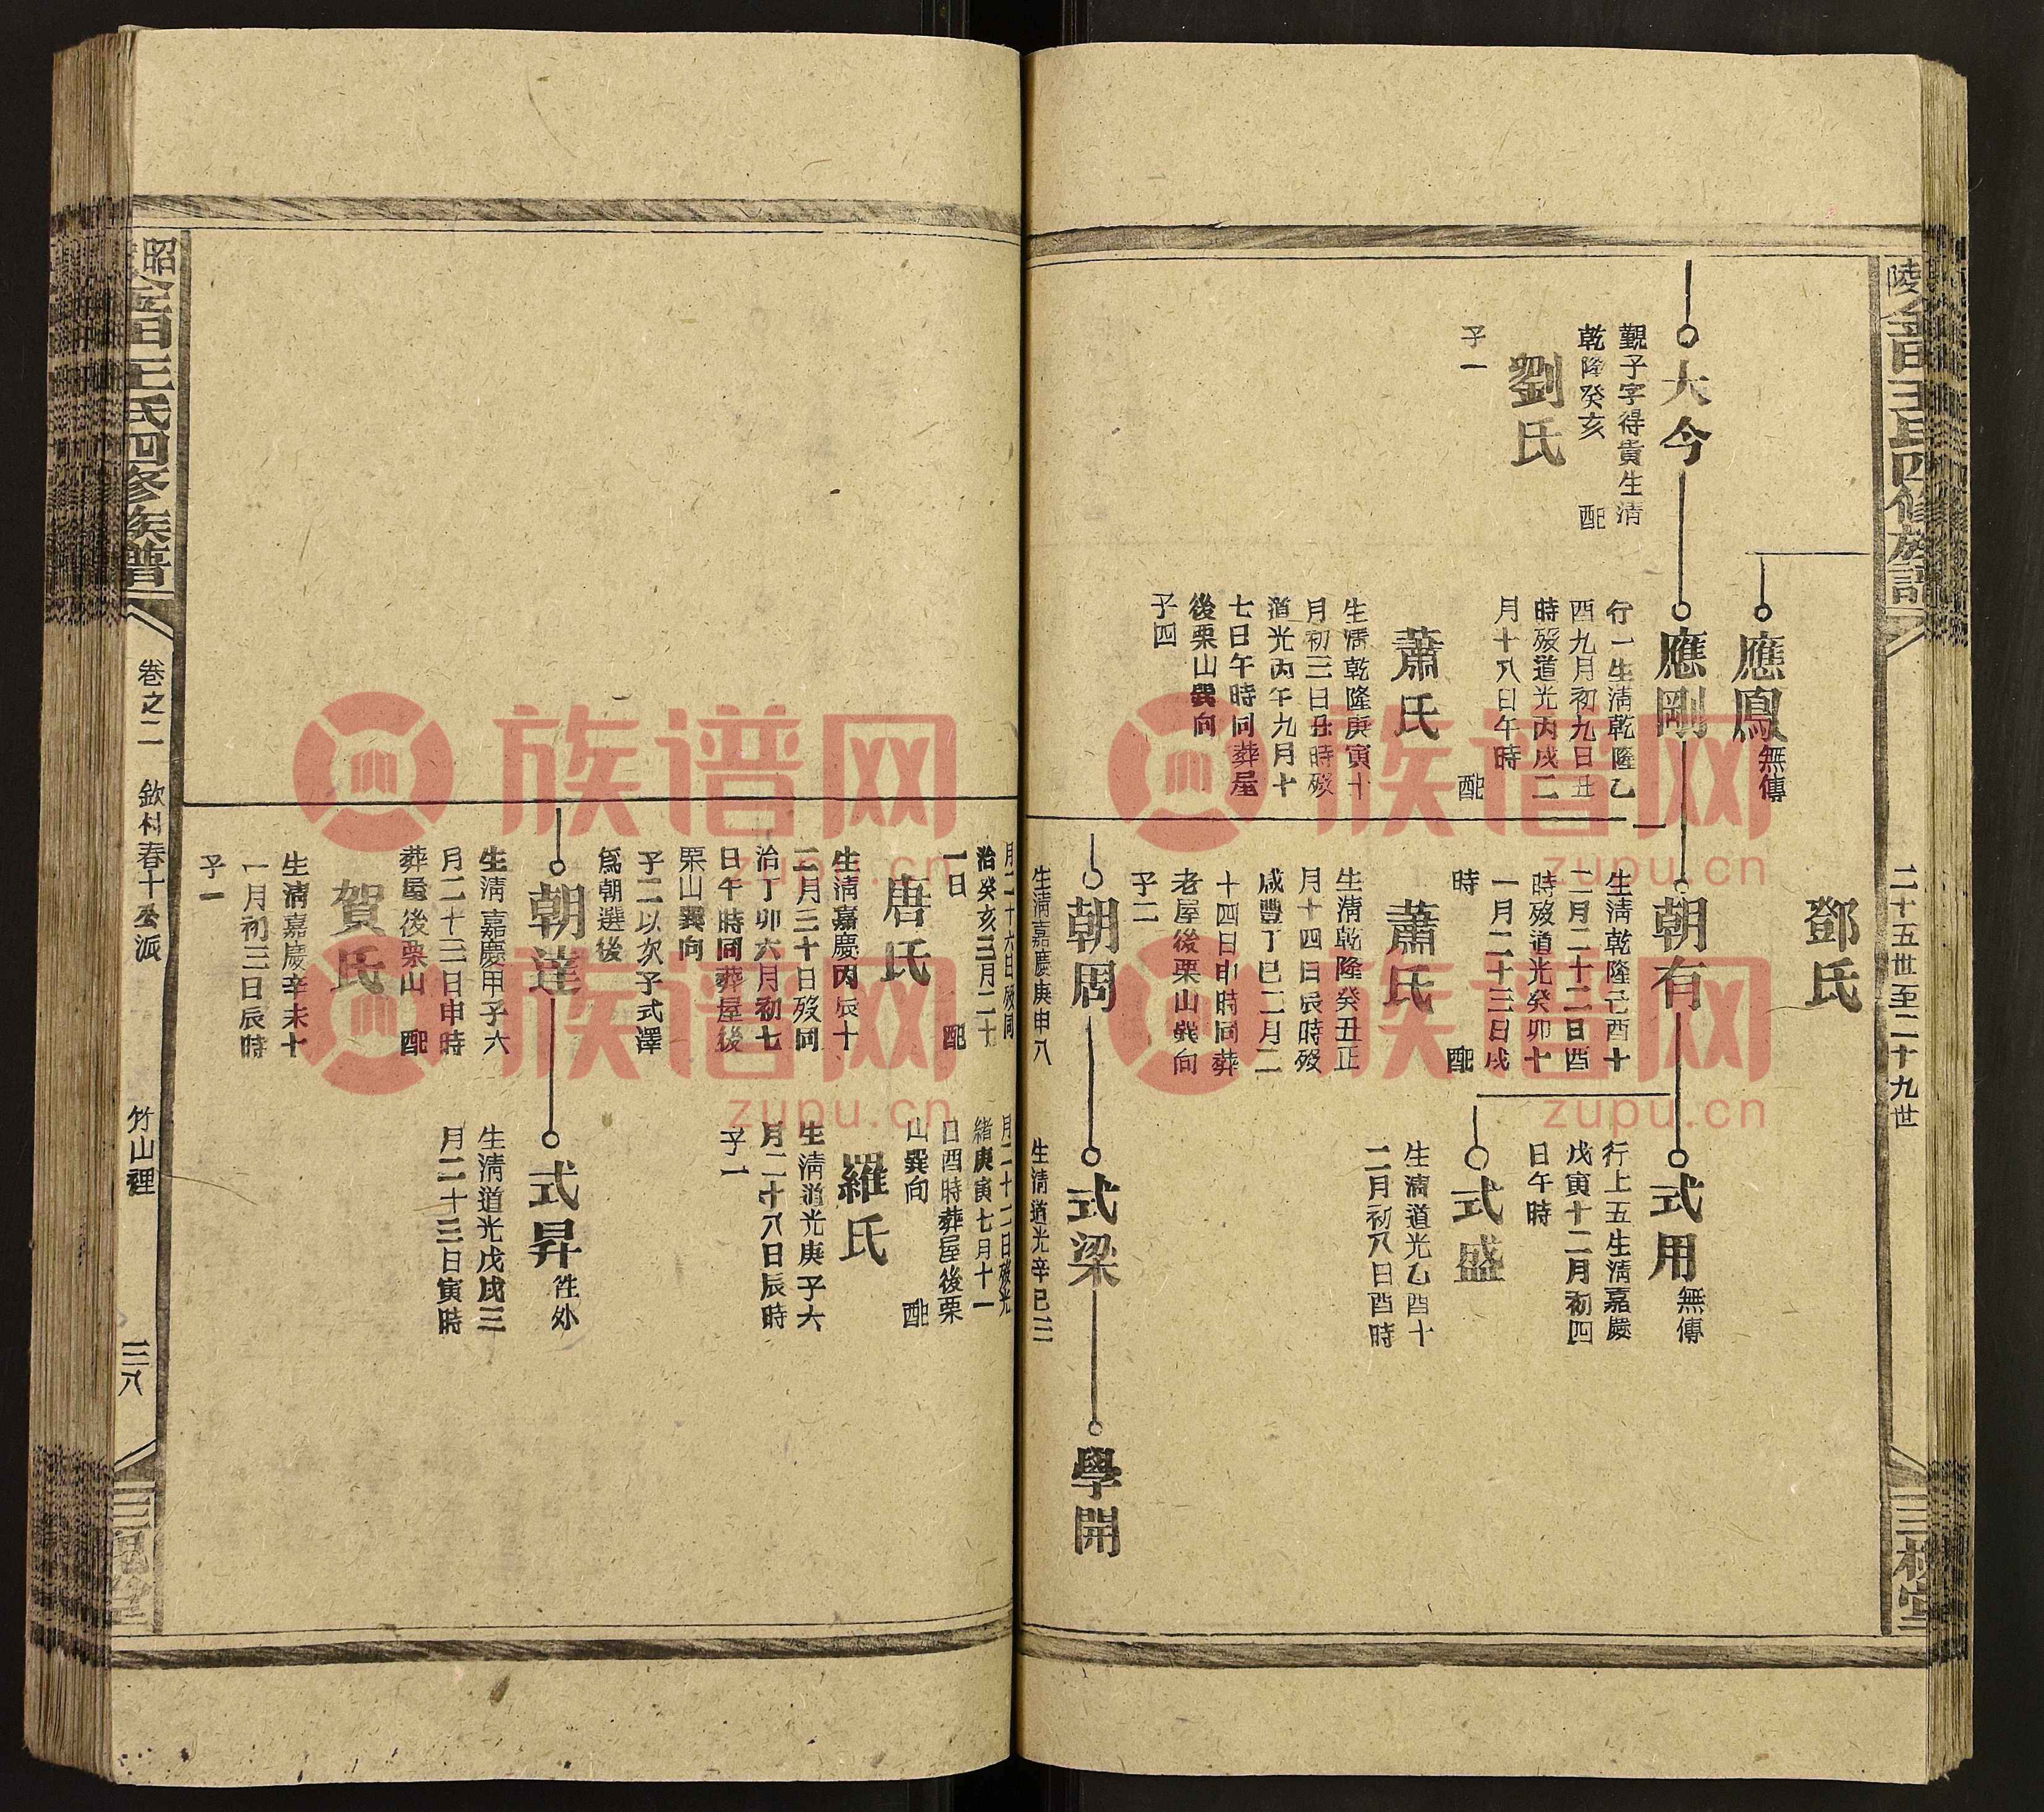 陵
金田王氏四修族譜
二十五世至二十九世
三槐堂
鄧氏
應鳳 無傳
大今
覲子字得貴生清
乾隆癸亥 配
劉氏
子一
應剛
行一生清乾隆乙
酉九月初九日丑
時歿道光丙戌二
月十八日午時
配
蕭氏
生清乾隆庚寅十
月初三日丑時歿
道光丙午九月十
七日午時同葬屋
後栗山巽向
子四
朝有
生清乾隆己酉十
二月二十二日酉
時歿道光癸卯十
一月二十三日戌
時 配
蕭氏
生清乾隆癸丑正
月十四日辰時歿
咸豐丁巳二月二
十四日申時同葬
老屋後栗山巽向
子二
式用 無傳
行上五生清嘉慶
戊寅十二月初四
日午時
式盛
生清道光乙酉十
二月初八日酉時
朝周
生清嘉慶庚申八
月二十六日歿同
治癸亥三月二十
一日 配
唐氏
生清嘉慶丙辰十
二月三十日歿同
治丁卯六月初七
日午時同葬屋後
栗山巽向
子二以次子式澤
為朝選後
式梁
生清道光辛巳三
月二十二日歿光
緒庚寅七月十一
日酉時葬屋後栗
山巽向 配
羅氏
生清道光庚子六
月二十八日辰時
子一
學開
朝達
生清嘉慶甲子六
月二十三日申時
葬屋後栗山 配
賀氏
生清嘉慶辛未十
一月初三日辰時
子一
式昇 徃外
生清道光戊戌三
月二十三日寅時
昭
金田王氏四修族譜
卷之二 欽村春十公派
竹山裡
三八
三槐堂
族谱网
zupu.cn
族谱网
zupu.cn
族谱网
zupu.cn
族谱网
zupu.cn